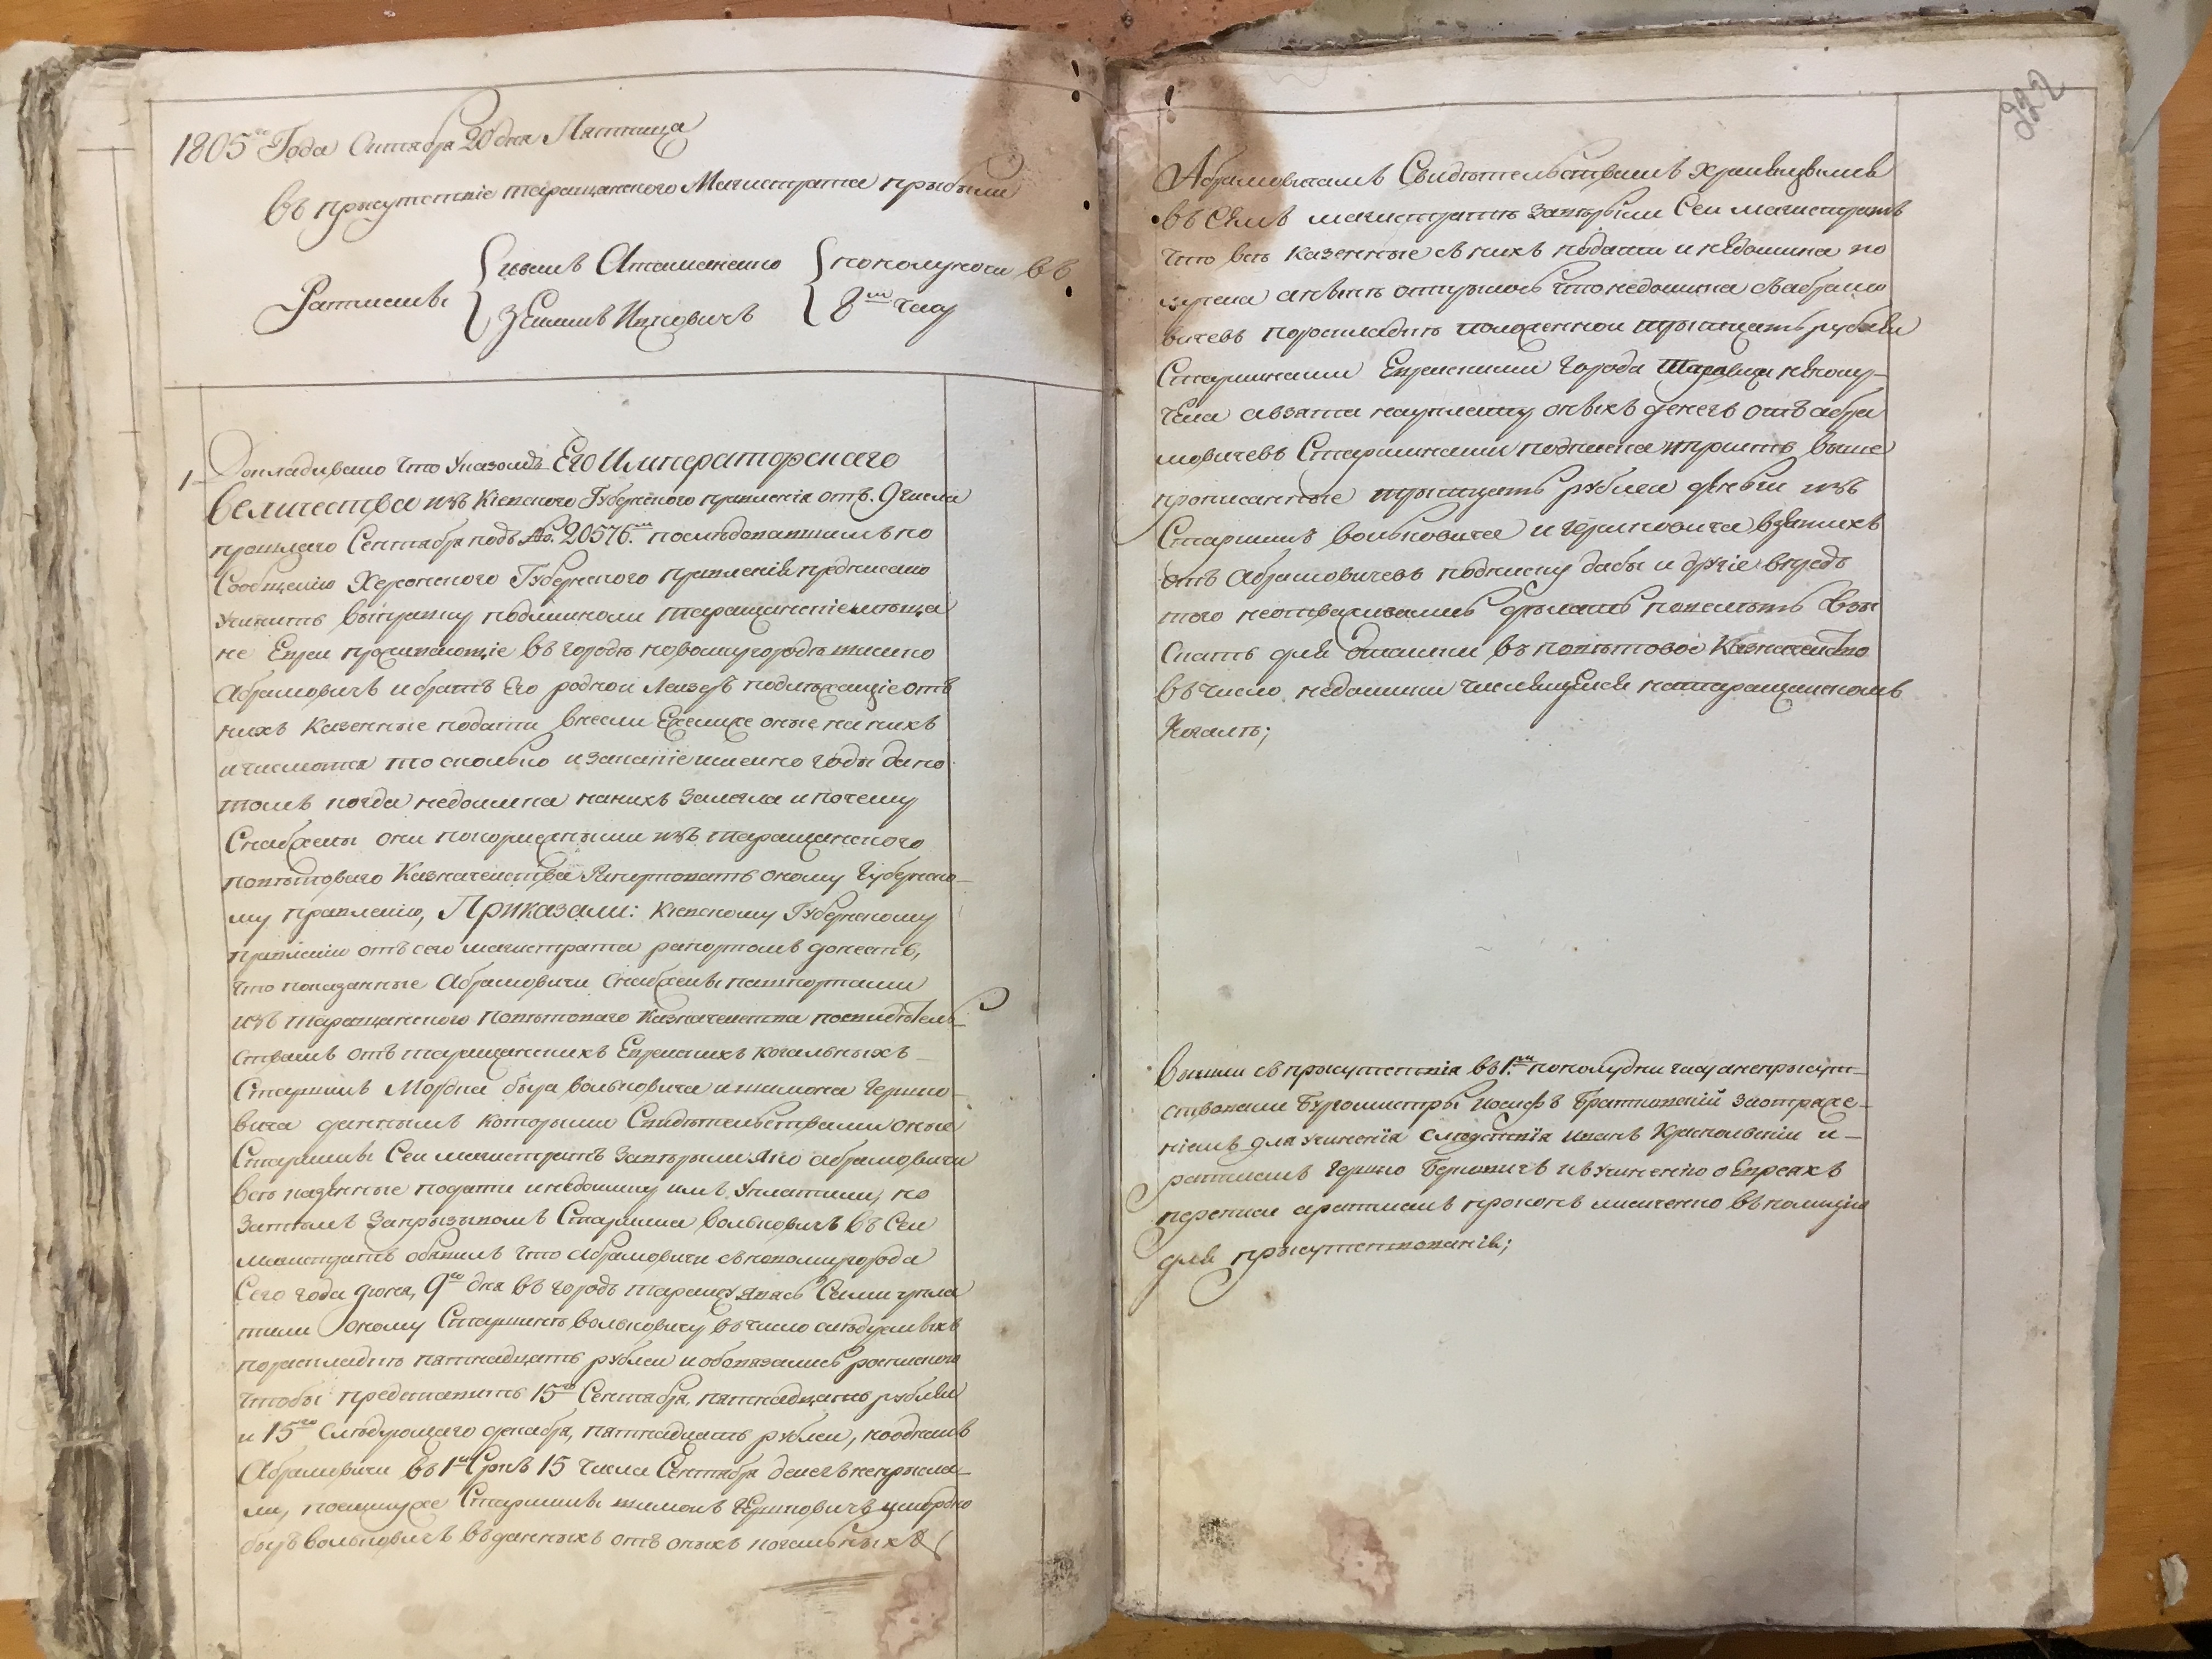 222
1805го Года Октября 20 дня Пятница
въ присутствие таращанского Магистрата прибыли
Ратманы
Атаманенко
Ицковичъ
пополуночи въ
8м часу
1 Докладывано что Указомъ Его Императорскаго
Величества изъ Киевского Губернского правления отъ 9 числа
прошлаго Сентября подъ No. 20576м последовавшимъ по
Сообщению Херсонского Губернского правления предписано
Учинить выправку подлинноли таращанские меща
не Евреи проживающие въ городе новомиргороде
Абрамовичъ и братъ Его родной Лейзеръ подлежащие отъ
нихъ Казенные подати внесли Ежелиже оные на нихъ
и числятся то сколько и закакие именно годы да по
томъ когда недоимка на нихъ залегла и почему
Снабжены они покормежными изъ таращанского
поветоваго Казначейства Рапортовать оному Губернско-
му правлению, Приказали: Киевскому Губернскому
правлению отъ сего магистрата рапортомъ донесть,
что показанные Абрамовичи Снабжены пашпортами
изъ таращанского Поветоваго Казначейства по свидетель-
ствамъ отъ таращанскихъ Еврейскихъ кагальныхъ
Старшинъ Мордка быга вольковича и шимона Гершко-
вича даннымъ которыми Свидетельствами оные
Старшины Сей магистратъ Заверили яко абрамовичи
все казенные подати и недоимку имъ Уплатили, но
Затемъ Запризывомъ Старшина вольковичъ въ Сей
магистратъ объявилъ что абрамовичи сновомиргорода
Сего года июня, 9го дня въ городъ таращу явясь Сами упла
тили оному Старшине вольковичу въ число следуемыхъ
пораскладке пятнадцать рублей и обовязались роспискою
чтобы представить 15го Сентября, пятнадцать рублей
и 15го Следующаго декабря, пятнадцать рублей, но однакъ
Абрамовичи въ 1й Срокъ 15 числа Сентября денегъ неприсла-
ли, поелику же Старшины шимонъ Гершковичъ
быгъ вольковичъ въ данныхъ отъ оныхъ кагальныхъ
Абрамовичамъ Свидетельствамъ хранящимся
въ Семъ магистрате Заверили Сей магистратъ
что все казенные с нихъ подати и недоимка по
лучена а ныне открылось что недоимка съ абрамо
вичевъ пораскладке положенной трыцать рублей
Старшинами Еврейскими Города Таращи неполу-
чена а взята на уплату оныхъ денегъ отъ абра
мовичевъ Старшинами подписка выше
прописанные трыцать рублей денегъ изъ
Старшинъ вольковича и гершковича взявшихъ
отъ Абрамовичевъ подписку дабы и другие впредь
того неотваживались делать повелеть взы
скать для отсылки въ поветовое Казначейство
въ число недоимки числящейся натаращанскомъ
Кагале;
вышли съ присутствия въ 1м пополудни часу а неприсут-
ствовали Бургомистры Иосифъ Братковский
для учинения следствия иванъ и
ратманъ Гершко Берковичъ кучинению о Евреахъ
переписи а ратманъ прокопъ лисиченко въ полицию
для присутствования;